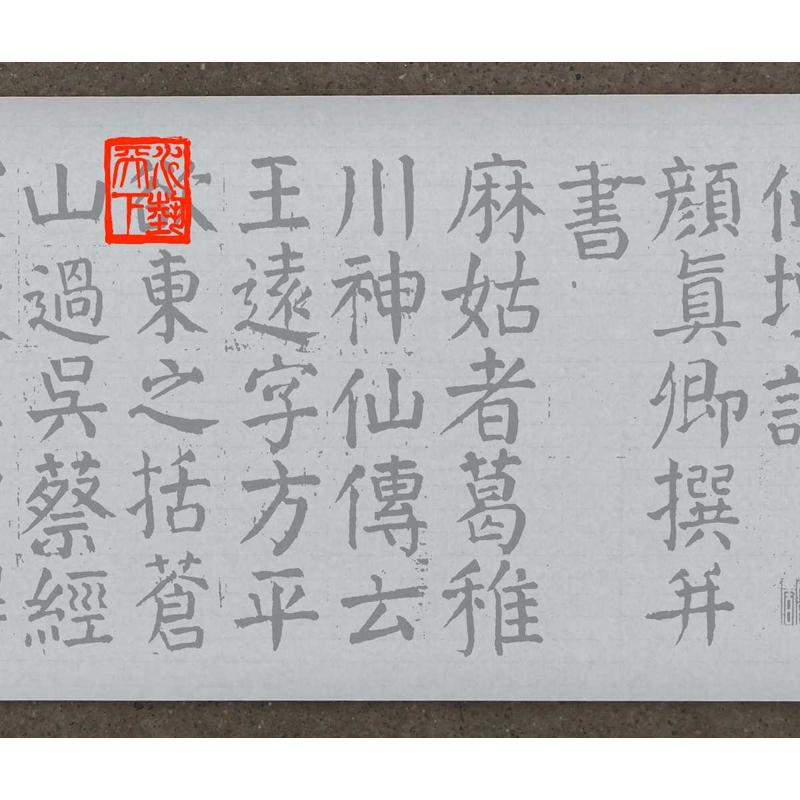 仙壇記
顏眞卿撰并
書
麻姑者葛稚
川神仙傳云
王遠字方平
東之括蒼
山過吳蔡經
藝天下